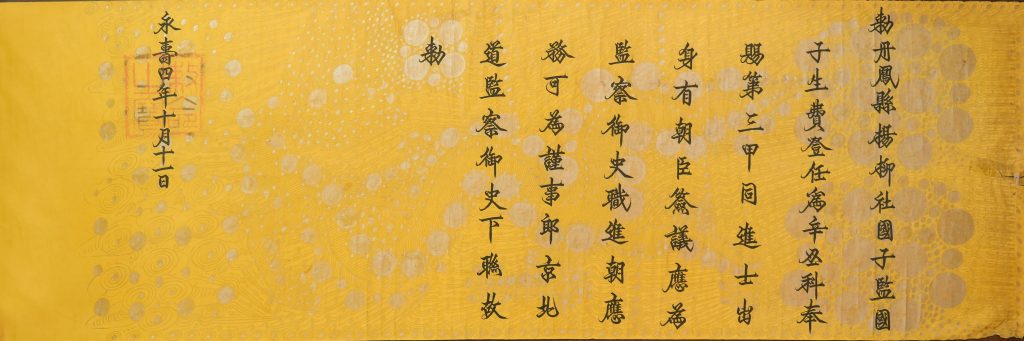 勅丹鳳縣揚柳社國子監國
子生費登任爲辛丑科奉
賜第三甲同進士出
身有朝臣僉議應爲
監察御史職進朝應
務可爲謹事郎京北
道監察御史下聮故
勅
永壽四年十月十一日